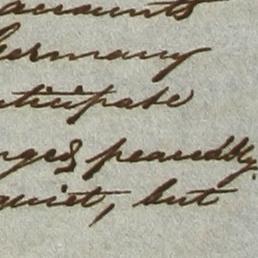 accounts
Germany
nticipate
nged peaceably.
quiet, but